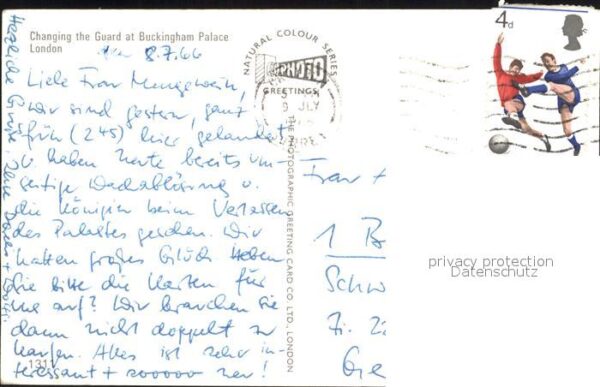 Changing the Guard at Buckingham Palace
London
8.7.66
Liebe Frau
wir sind gestern, ganz
früh (245) hier gelandet
u. haben heute bereits um-
seitige Wachablösung u.
die Königin beim Verlassen
des Palastes gesehen. Wir
hatten großes Glück. Heben
Sie bitte die Karten für
uns auf? Wir brauchen sie
dann nicht doppelt zu
kaufen. Alles ist sehr in-
teressant + sooooo neu!
Herzliche Grüße Ihre
1311
NATURAL COLOUR SERIES
PHOTO
GREETINGS
THE PHOTOGRAPHIC GREETING CARD CO. LTD., LONDON
9 JLY
4d
Frau
1 B
Schw
Fr. 22
Ge
privacy protection
Datenschutz